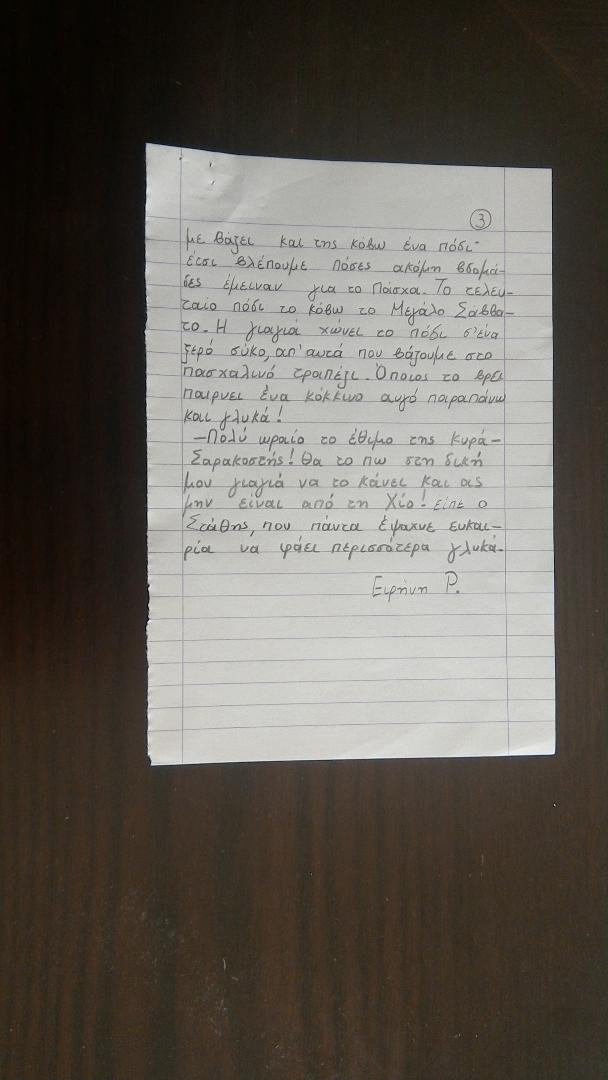 ③
με βάζει και της κόβω ένα πόδι·
έτσι βλέπουμε πόσες ακόμη βδομά-
δες έμειναν για το Πάσχα. Το τελευ-
ταίο πόδι το κόβω το Μεγάλο Σάββα-
το. Η γιαγιά χώνει το πόδι σ'ένα
ξερό σύκο, απ'αυτά που βάζουμε στο
πασχαλινό τραπέζι. Όποιος το βρει
παίρνει ένα κόκκινο αυγό παραπάνω
και γλυκά!
-Πολύ ωραίο το έθιμο της Κυρά-
Σαρακοστής! Θα το πω στη δική
μου γιαγιά να το κάνει και ας
μην είναι από τη Χίο! είπε ο
Στάθης, που πάντα έψαχνε ευκαι-
ρία να φάει περισσότερα γλυκά.
Ειρήνη Ρ.